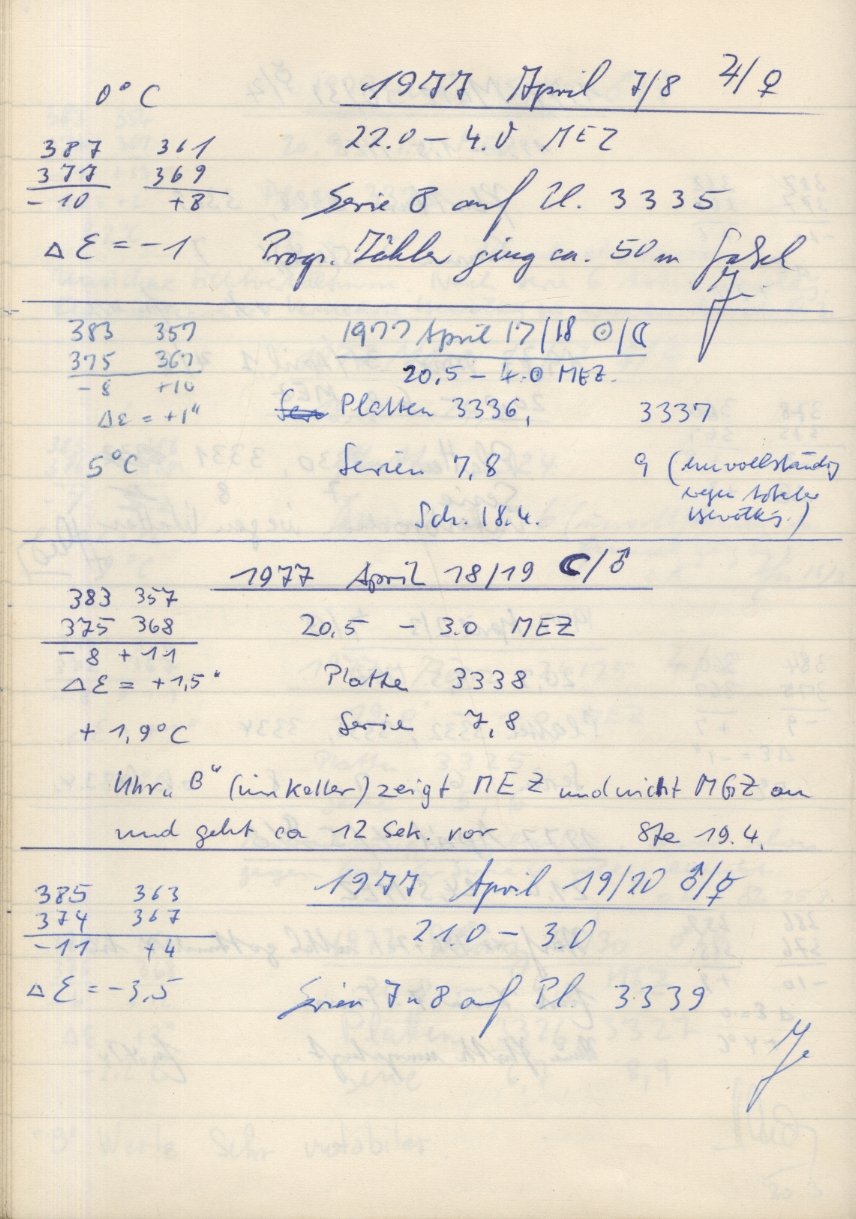 0°C 1977 April 7/8 ♃/♀
387 361 22.0 – 4.0 MEZ
377 369
-10 +8 Serie 8 auf Pl. 3335
Δ Ɛ = -1 Progr. Zähler ging ca. 50m falsch
Je
383 357 1977 April 17/18 ☉/☾
375 367 20,5 – 4.0 MEZ.
-8 +10
Δε = +1" Platten 3336, 3337
5°C Serien 7,8 9 (unvollständig
wegen totaler
Bewölkg.)
Sch. 18.4.
1977 April 18/19 ☾/♂
383 357
375 368 20,5 – 3.0 MEZ
-8 +11
Δ Ɛ = +1,5" Platte 3338
+ 1,9°C Serie 7,8
Uhr „B" (im Keller) zeigt MEZ und nicht MGZ an
und geht ca 12 Sek. vor Ste 19.4.
385 363 1977 April 19/20 ♂/☿
374 367 21.0 – 3.0
-11 +4
Δ Ɛ = -3,5 Serien 7 u 8 auf Pl. 3339
Je